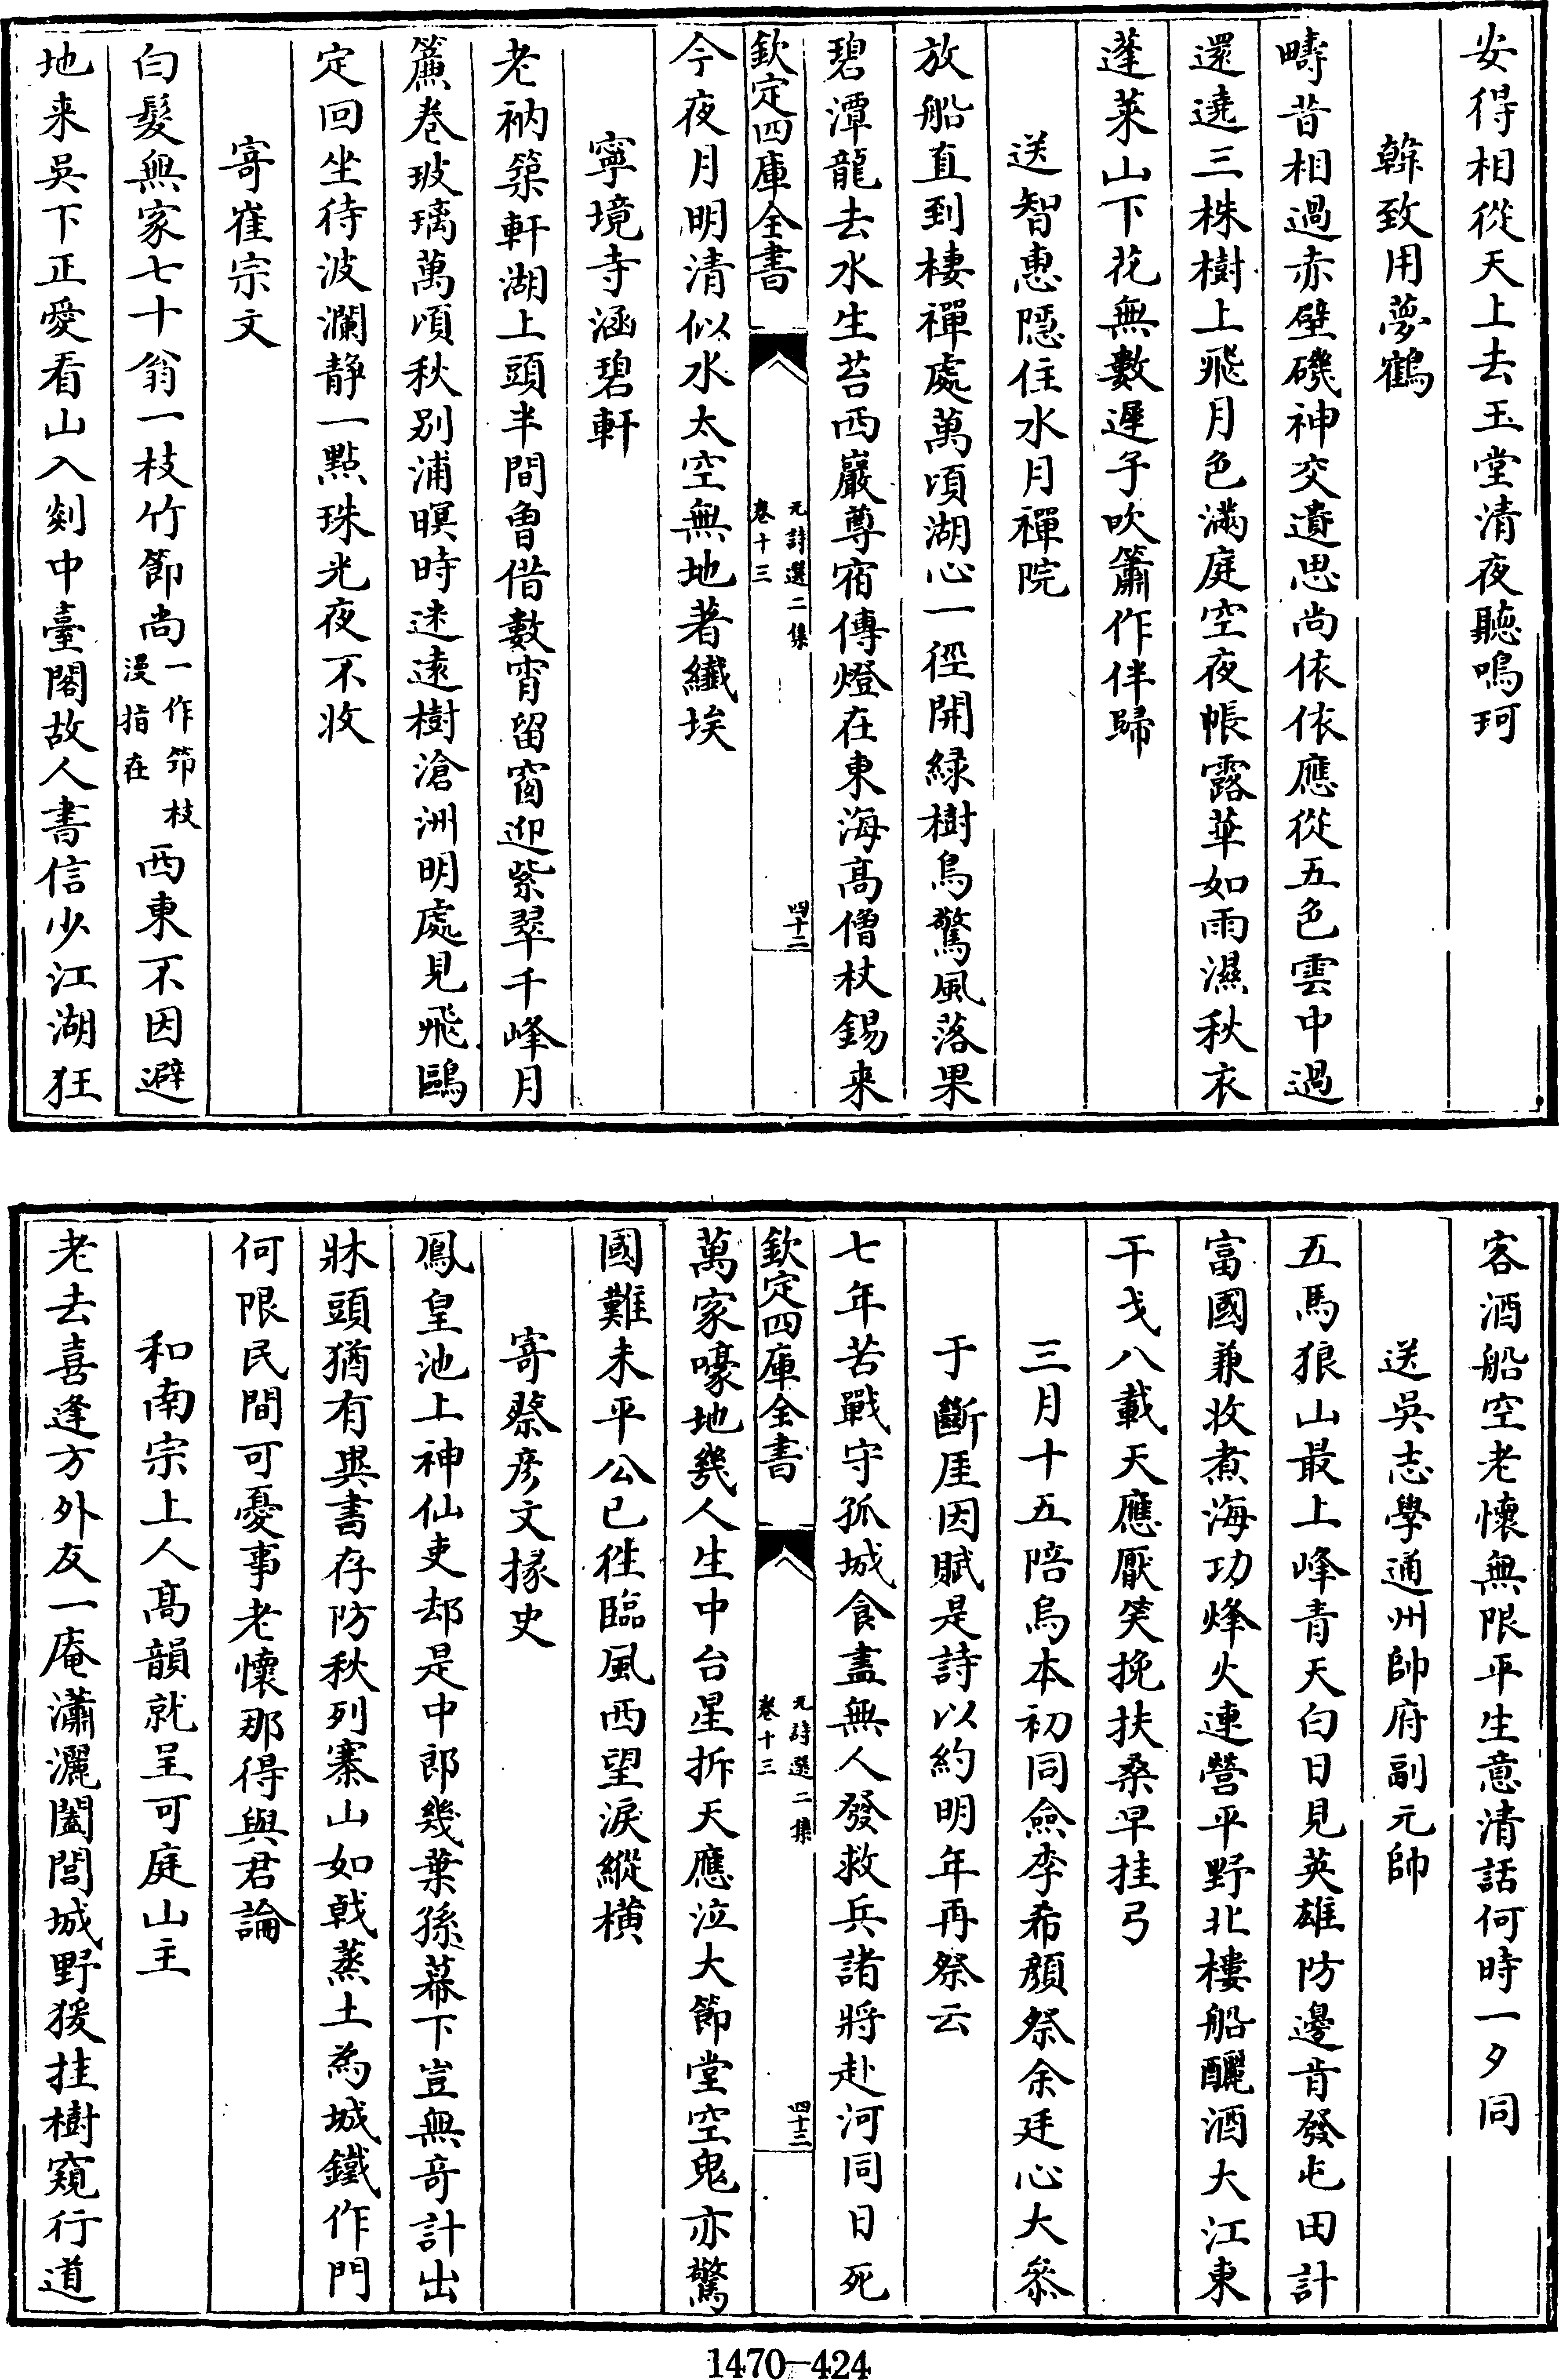 安得相從天上去玉堂清夜聽鳴珂
韓致用夢鶴
疇昔相過赤壁磯神交遺思尚依依應從五色雲中過
還遶三株樹上飛月色滿庭空夜帳露華如雨濕秋衣
蓬萊山下花無數遲子吹簫作伴歸
送智惠隱住水月禪院
放船直到棲禪處萬頃湖心一徑開緑樹鳥驚風落果
碧潭龍去水生苔西巖尊宿傳燈在東海髙僧杖錫来
欽定四庫全書
元詩選二集
卷十三
四十二
今夜月明清似水太空無地著纖埃
寧境寺涵碧軒
老衲築軒湖上頭半間曽借數宵留窗迎紫翠千峰月
簾卷玻璃萬頃秋别浦暝時迷逺樹滄洲明處見飛鷗
定回坐待波瀾静一點珠光夜不收
寄崔宗文
白髮無家七十翁一枝竹節尚
一作笻枝
漫指在
西東不因避
地来吳下正愛看山入剡中臺閣故人書信少江湖狂
客酒船空老懷無限平生意清話何時一夕同
送吳志學通州帥府副元帥
五馬狼山最上峰青天白日見英雄防邊肯發屯田計
富國兼收煮海功烽火連營平野北樓船釃酒大江東
干戈八載天應厭笑挽扶桑早挂弓
三月十五陪烏本初同僉李希顔祭余廷心大叅
于斷厓因賦是詩以約明年再祭云
七年苦戰守孤城食盡無人發救兵諸將赴河同日死
欽定四庫全書
元詩選二集
卷十三
四十三
萬家嚎地幾人生中台星拆天應泣大節堂空鬼亦驚
國難未平公已徃臨風西望淚縱横
寄蔡彦文掾史
鳳皇池上神仙吏却是中郎幾葉孫幕下豈無竒計出
牀頭猶有異書存防秋列寨山如戟蒸土為城鐵作門
何限民間可憂事老懷那得與君論
和南宗上人髙韻就呈可庭山主
老去喜逢方外友一庵瀟灑闔閭城野猨挂樹窺行道
1470—424